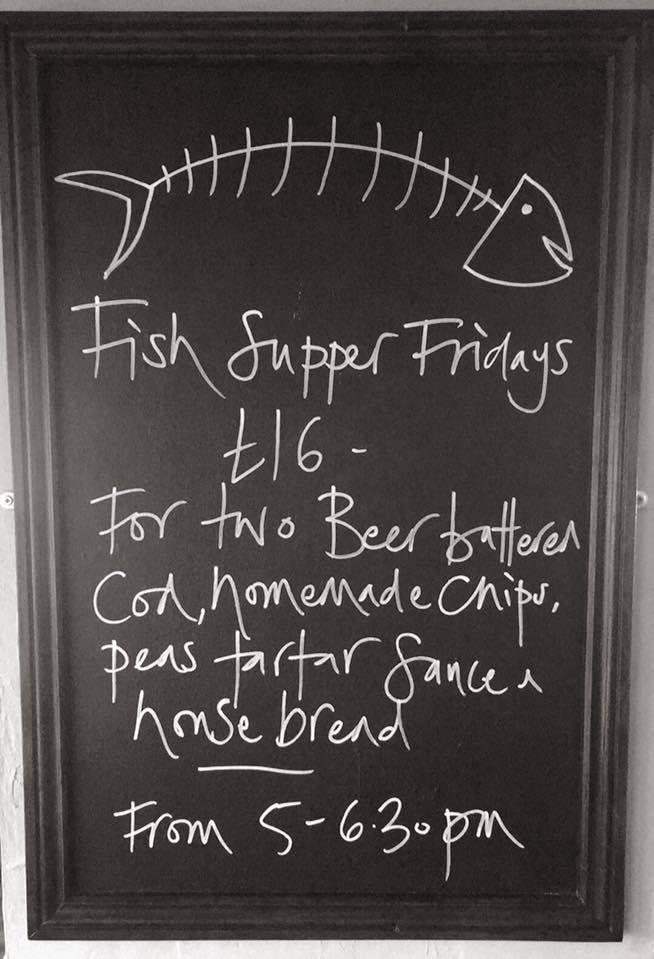 Fish Supper Fridays
£16-
For two Beer battered
Cod, homemade chips,
peas tartar Sauce &
house bread
From 5-6.30pm